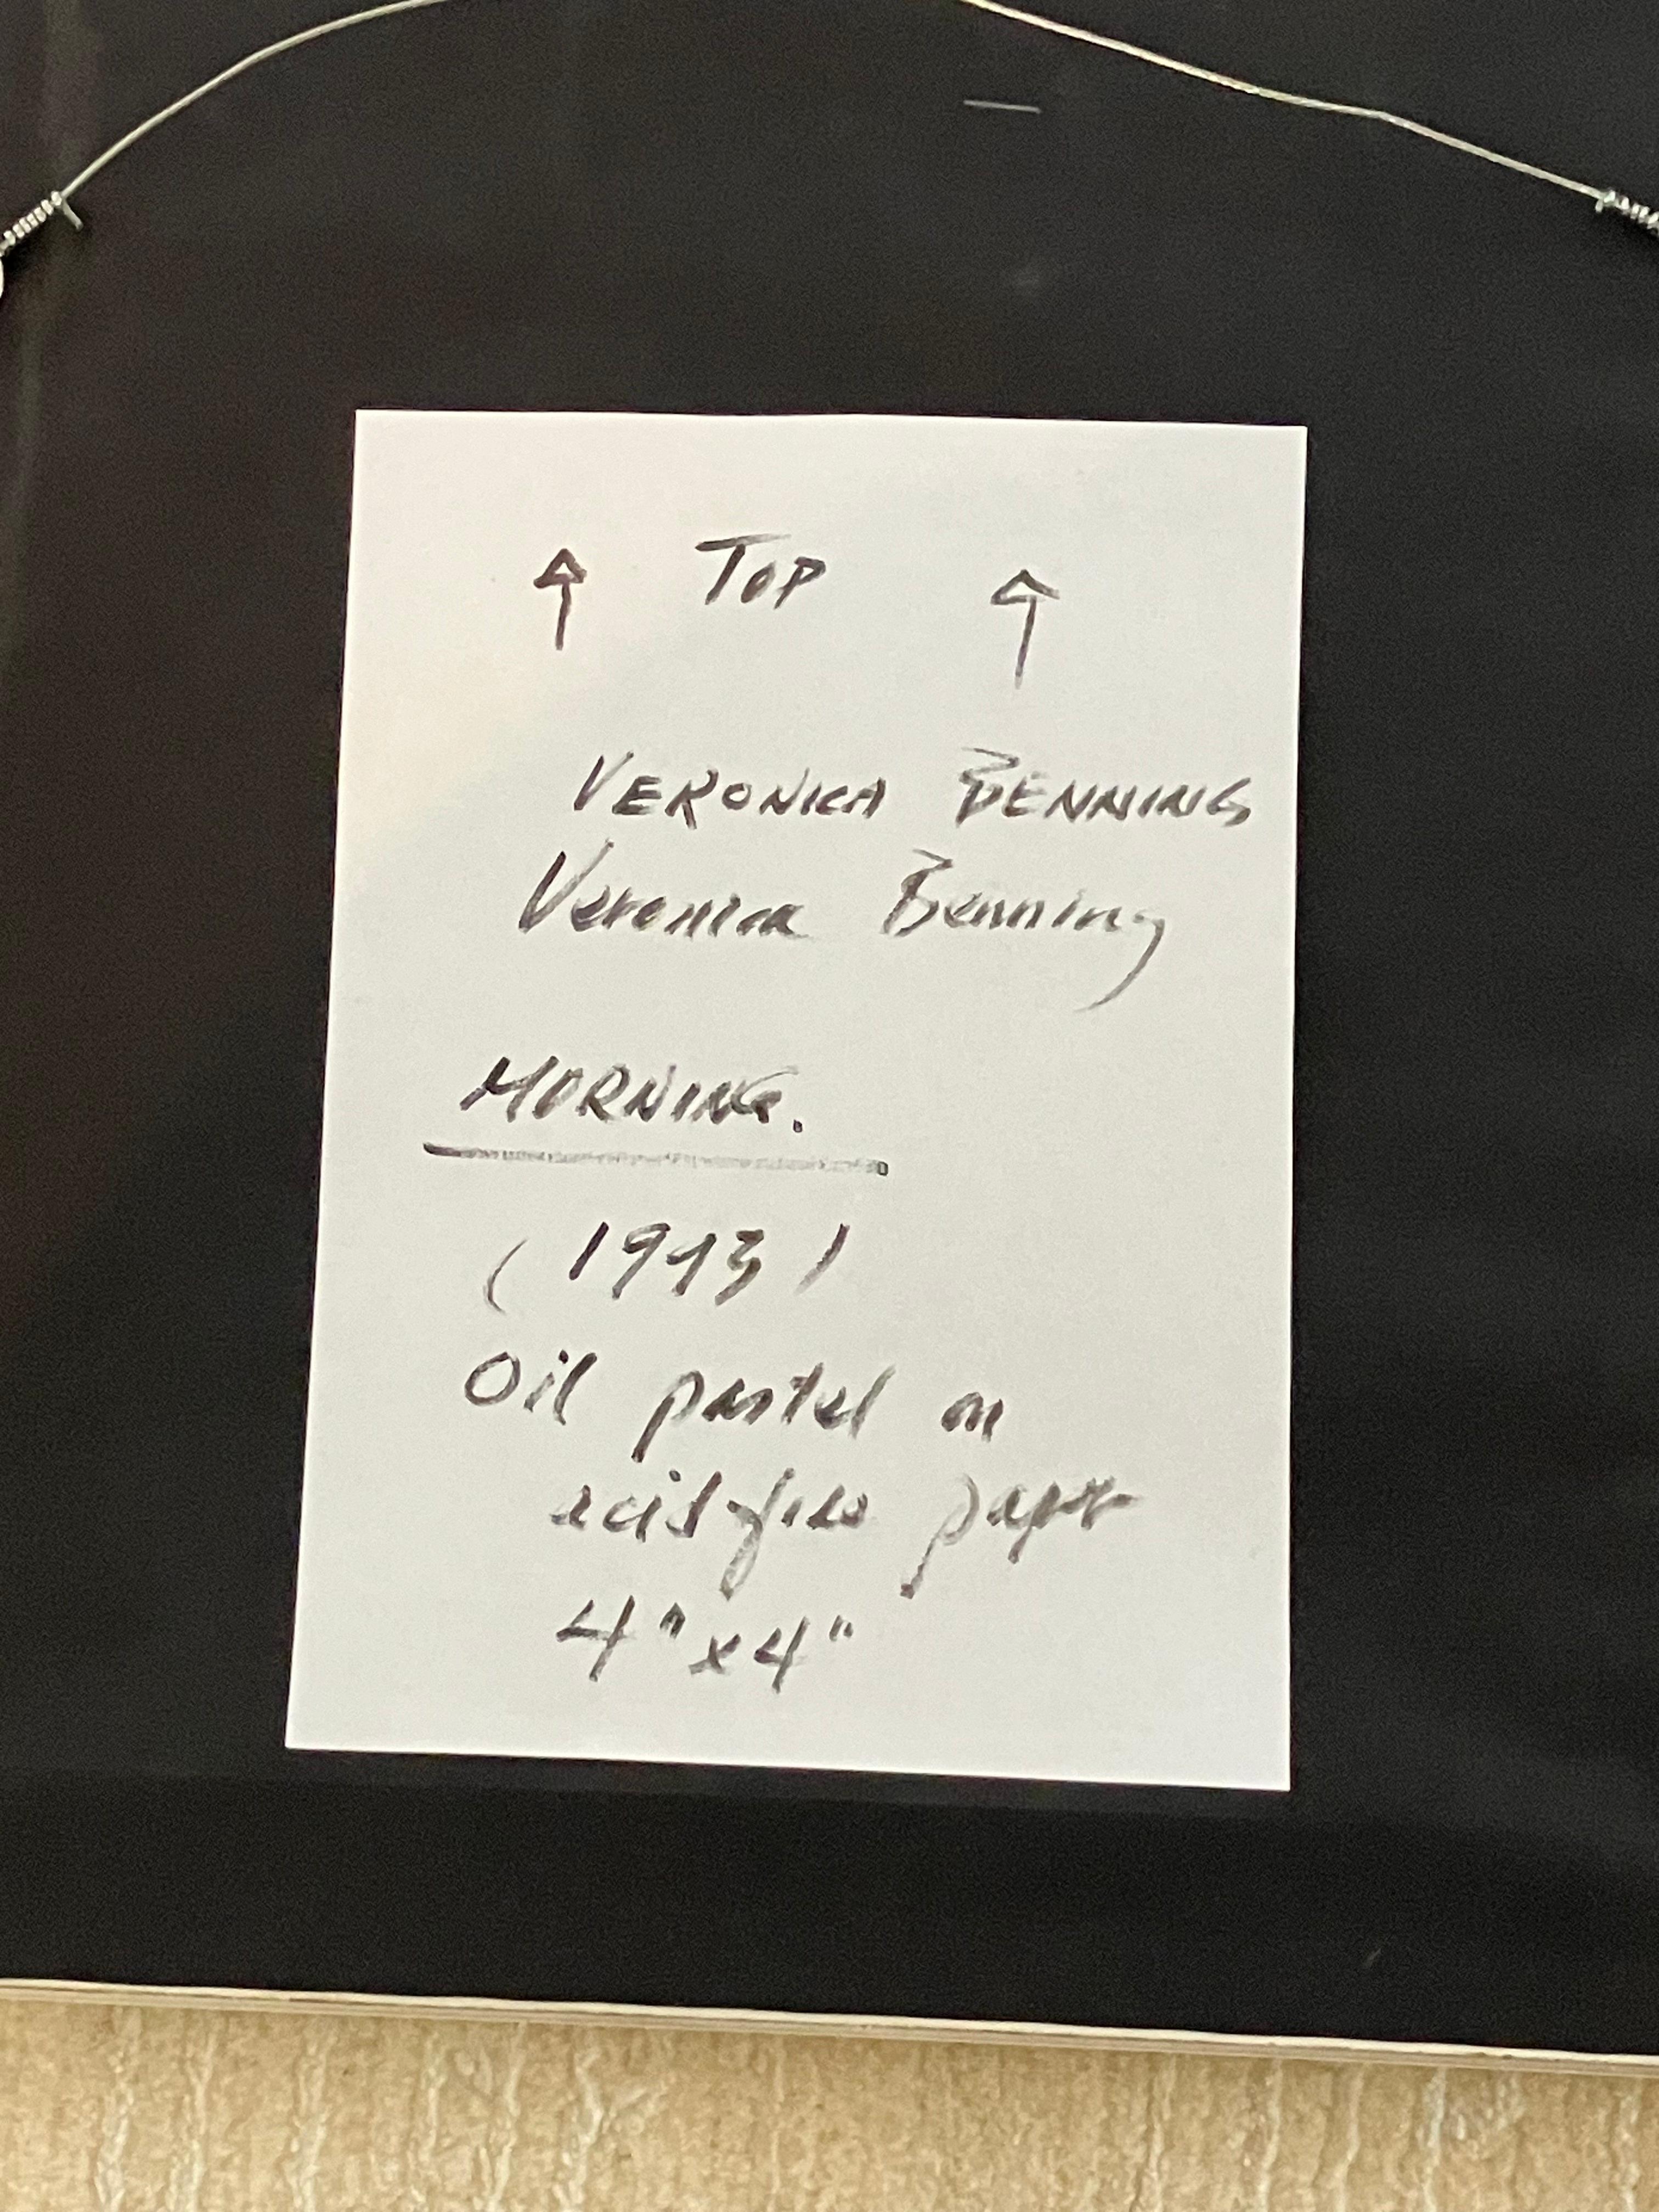 ↑ TOP ↑
VERONICA BENNING
Veronica Benning
MORNING.
(1993)
Oil pastel on
acid-free paper
4" x 4"